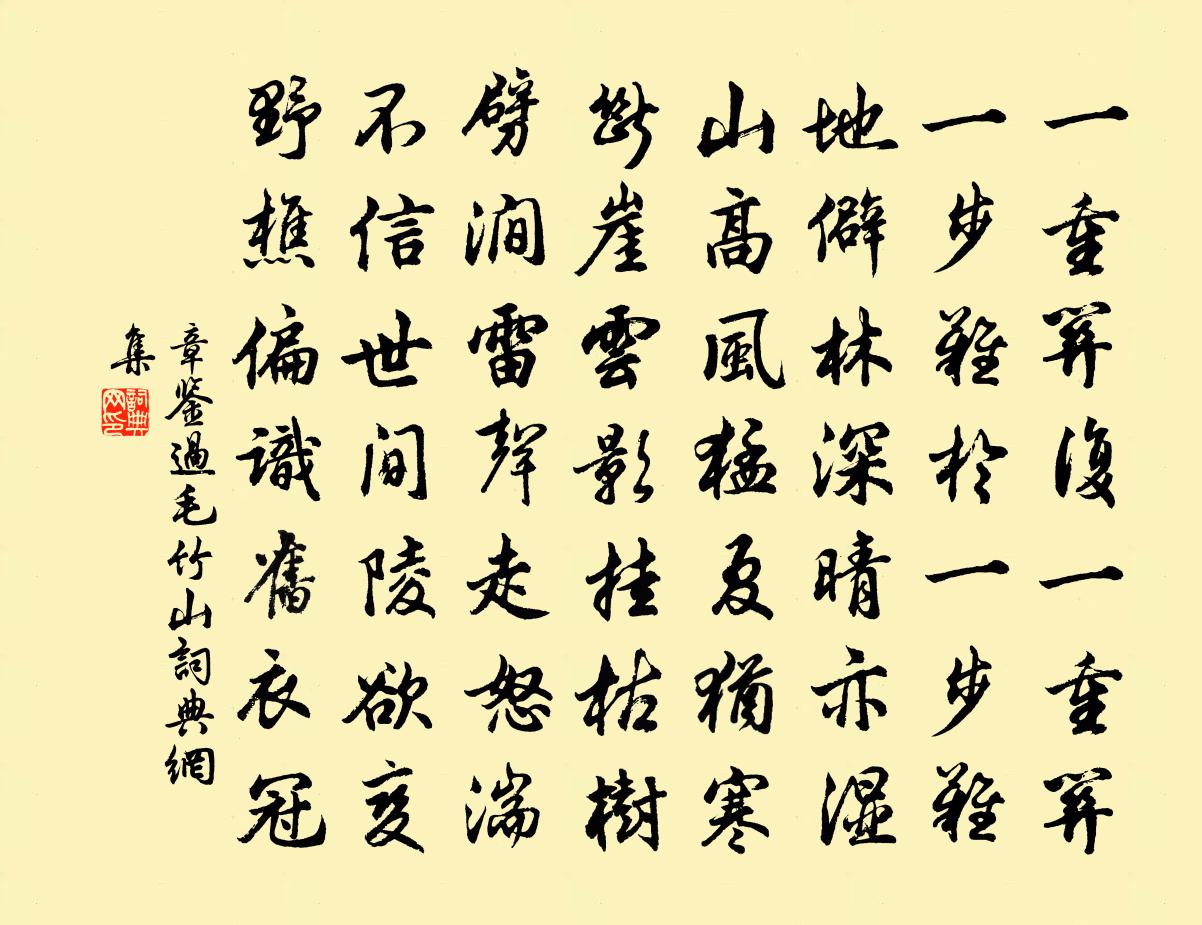 一重關復一重關
一步難於一步難
地僻林深晴亦湿
山高風猛夏猶寒
斷崖雲影挂枯樹
劈澗雷聲走怒湍
不信世間陵欲變
野樵偏識舊衣冠
章鉴過毛竹山詞典網
集
詞典网印